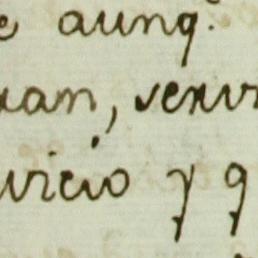 e aunq.
ran, servi
vicio y q